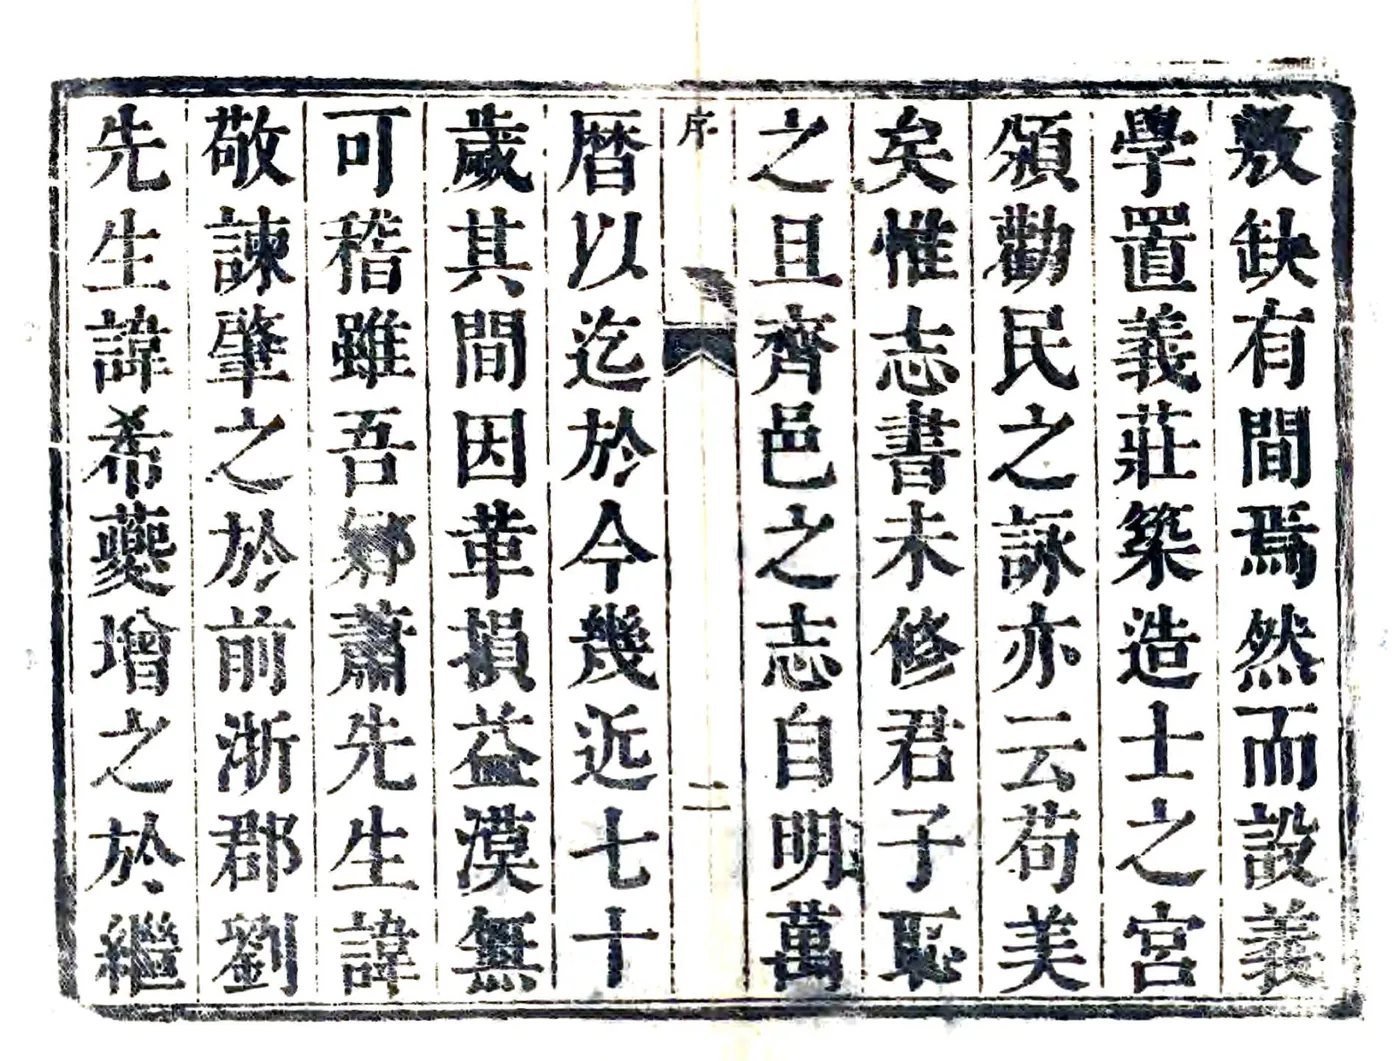 敖缺有間焉然而設義
學置義莊築造士之宮
頒勸民之詠亦云苟美
矣惟志書未修君子恥
之且齊邑之志自明萬
序
二
曆以迄於今幾近七十
歲其間因革損益漠無
可稽雖吾鄉蕭先生諱
敬諫肇之於前浙郡劉
先生諱希夔增之於繼